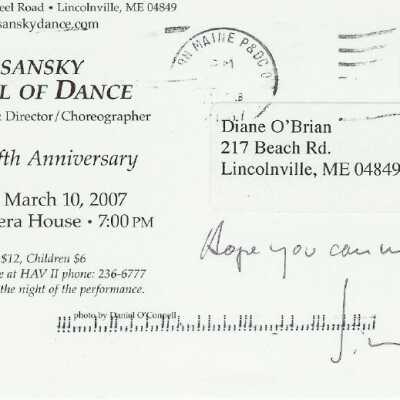 eel Road • Lincolnville, ME 04849
sanskydance.com
SANSKY
L OF DANCE
Director/Choreographer
fth Anniversary
March 10, 2007
era House • 7:00 PM
$12, Children $6
e at HAV II phone: 236-6777
the night of the performance.
photo by Daniel O'Connell
RN MAINE P&DC
PM
Diane O'Brian
217 Beach Rd.
Lincolnville, ME 04849
Hope you can